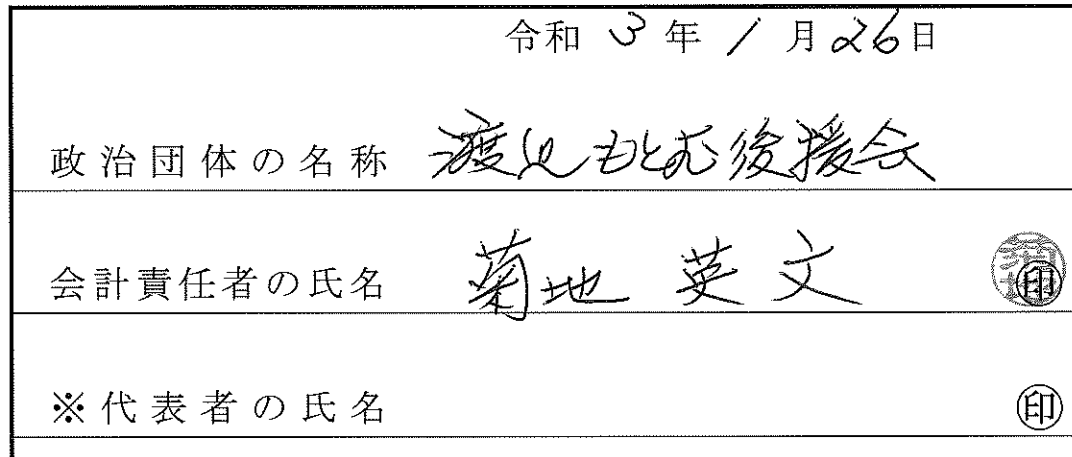 令和 3 年 1 月 26 日
政治団体の名称 渡辺もとむ後援会
会計責任者の氏名 菊地 英文 印
※代表者の氏名 印